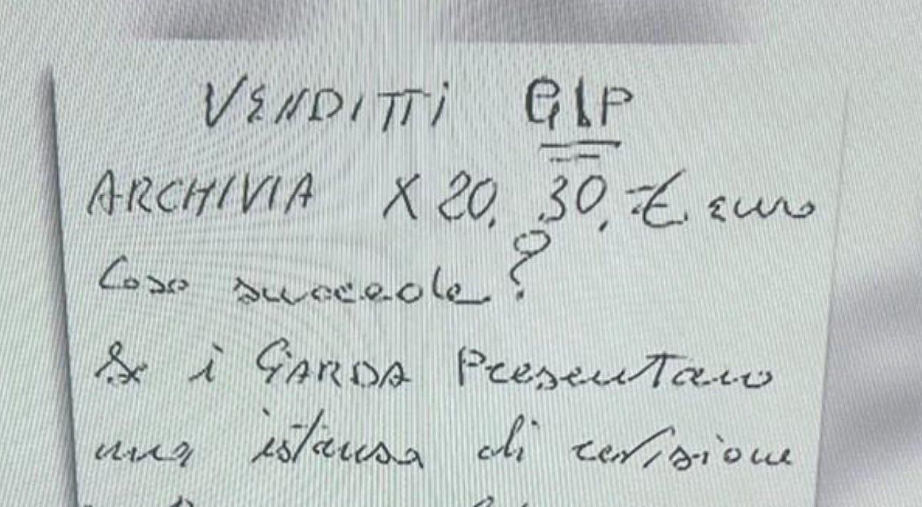 VENDITTI GIP
ARCHIVIA X 20, 30, € euro
Cosa succede?
Se i GARDA Presentano
una istansa di revisione